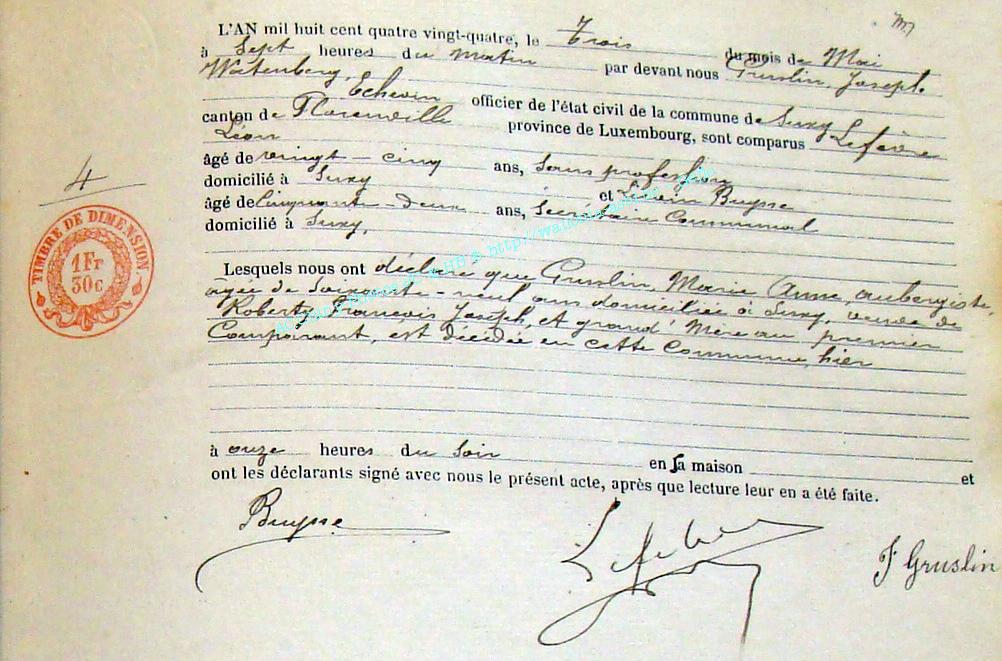 L'AN mil huit cent quatre vingt-quatre, le Trois du mois de Mai
à Sept heures du matin par devant nous Gruslin, Joseph
Watenberg, Echevin officier de l'état civil de la commune de Suxy
canton de Florenville province de Luxembourg, sont comparus Lefèvre
Léon
âgé de vingt-cinq ans, Sans profession
domicilié à Suxy et Livin Buysse
âgé de Cinquante-deux ans, Secrétaire Communal
domicilié à Suxy,
4
TIMBRE DE DIMENSION.
1Fr
30c
Lesquels nous ont déclaré que Gruslin, Marie Anne, aubergiste,
agée de Soixante-neuf ans domiciliée à Suxy, veuve de
Roberty François Joseph, et grand'Mère au premier
Comparant, est décédée en cette Commune, hier
à onze heures du Soir en sa maison et
ont les déclarants signé avec nous le présent acte, après que lecture leur en a été faite.
Buysse
Lefebvre
J Gruslin